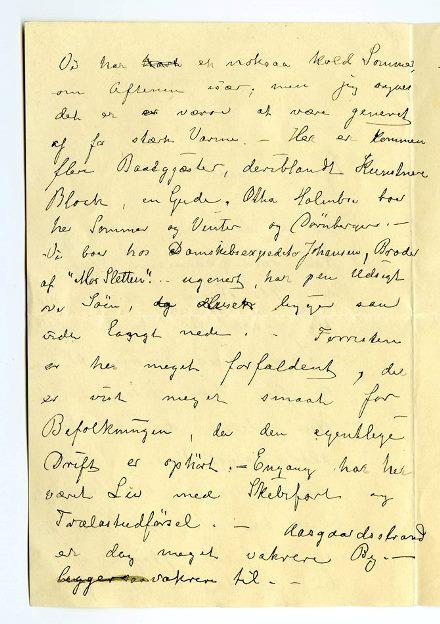 Vi har havt en noksaa kold Sommer,
om Aftenen især; men jeg synes
det er er værre at være generet
af for stærk Varme. – Her er kommen
flere Badegjæster, deriblandt Kunstnere
Bloch, en Gude, Otto Holmbo bor
her Sommer og Vinter og Dörnberger. –
Vi bor hos Dampskibsexpeditør Johansen, Broder
af "Mor Sletten". – ugenert, har pen Udsigt
over Söen, og Huset ligger saa
vidt
er her meget forfaldent, det
er vist meget smaat for
Befolkningen, da den egentlige
Drift er ophört. – Engang har her
været Liv med Skibsfart og
Trælastudförsel. – Aasgaardsstrand
er dog meget vakrere By. –
ligger vakrere til. –